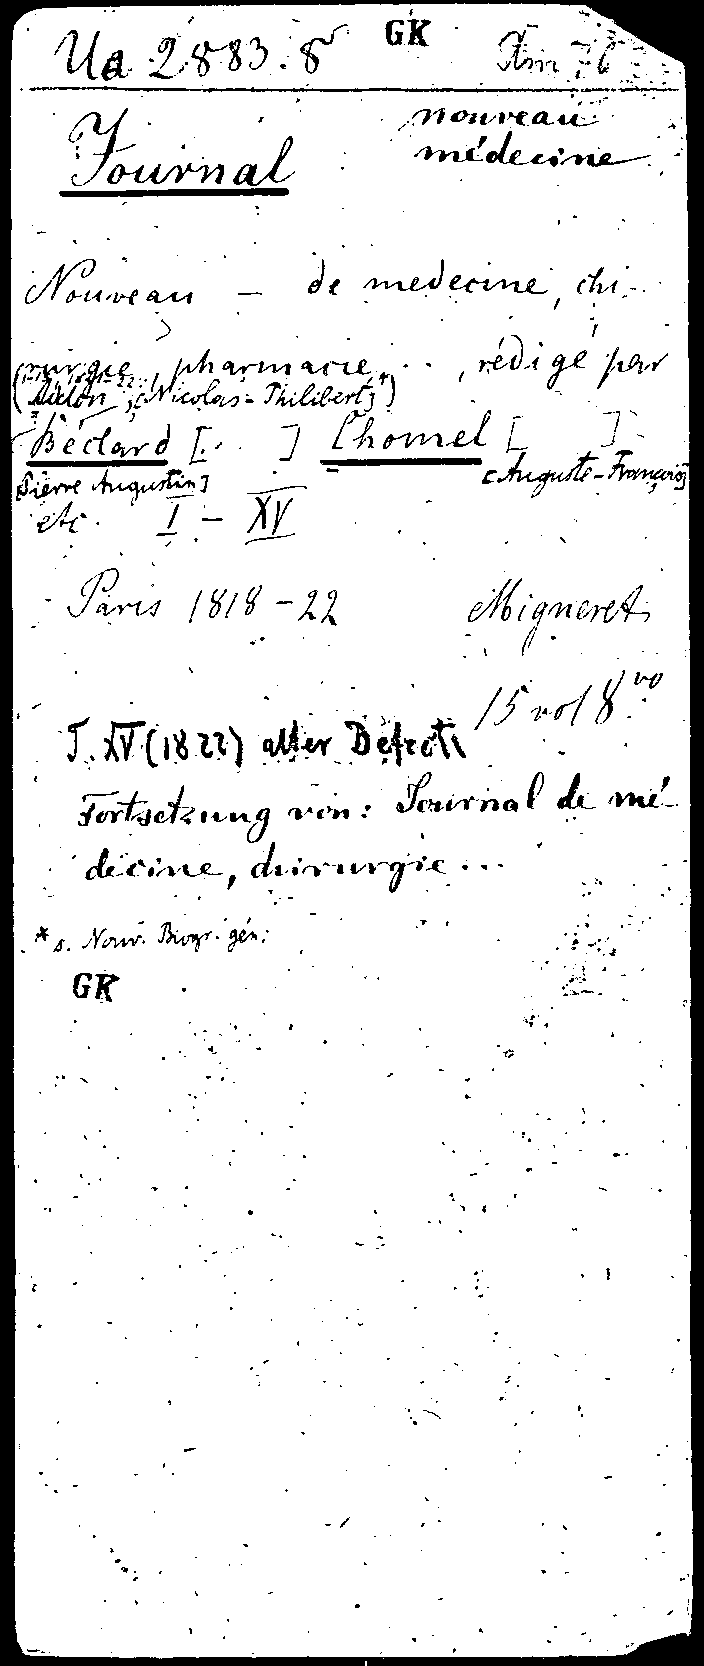 Ua 2883. 8° GK
nouveau
Journal médecine
Nouveau — de medecine, chi-
rurgie, pharmacie, . . , rédigé par
[Nicolas-Philibert]*)
Béclard [. . ] Chomel [ ]
[Pierre Augustin] [Auguste-François]
etc. I – XV
Paris 1818-22 Migneret
15 vol 8vo
T. XV (1822) alter Defect
Fortsetzung von: Journal de mé-
decine, chirurgie...
* s. Nouv. Biogr. gén.
GK